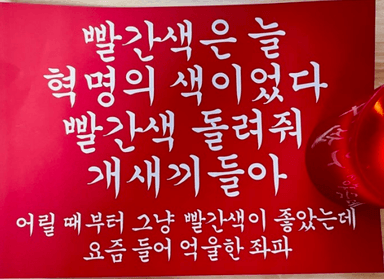 빨간색은 늘
혁명의 색이었다
빨간색 돌려줘
개새끼들아
어릴 때부터 그냥 빨간색이 좋았는데
요즘 들어 억울한 좌파